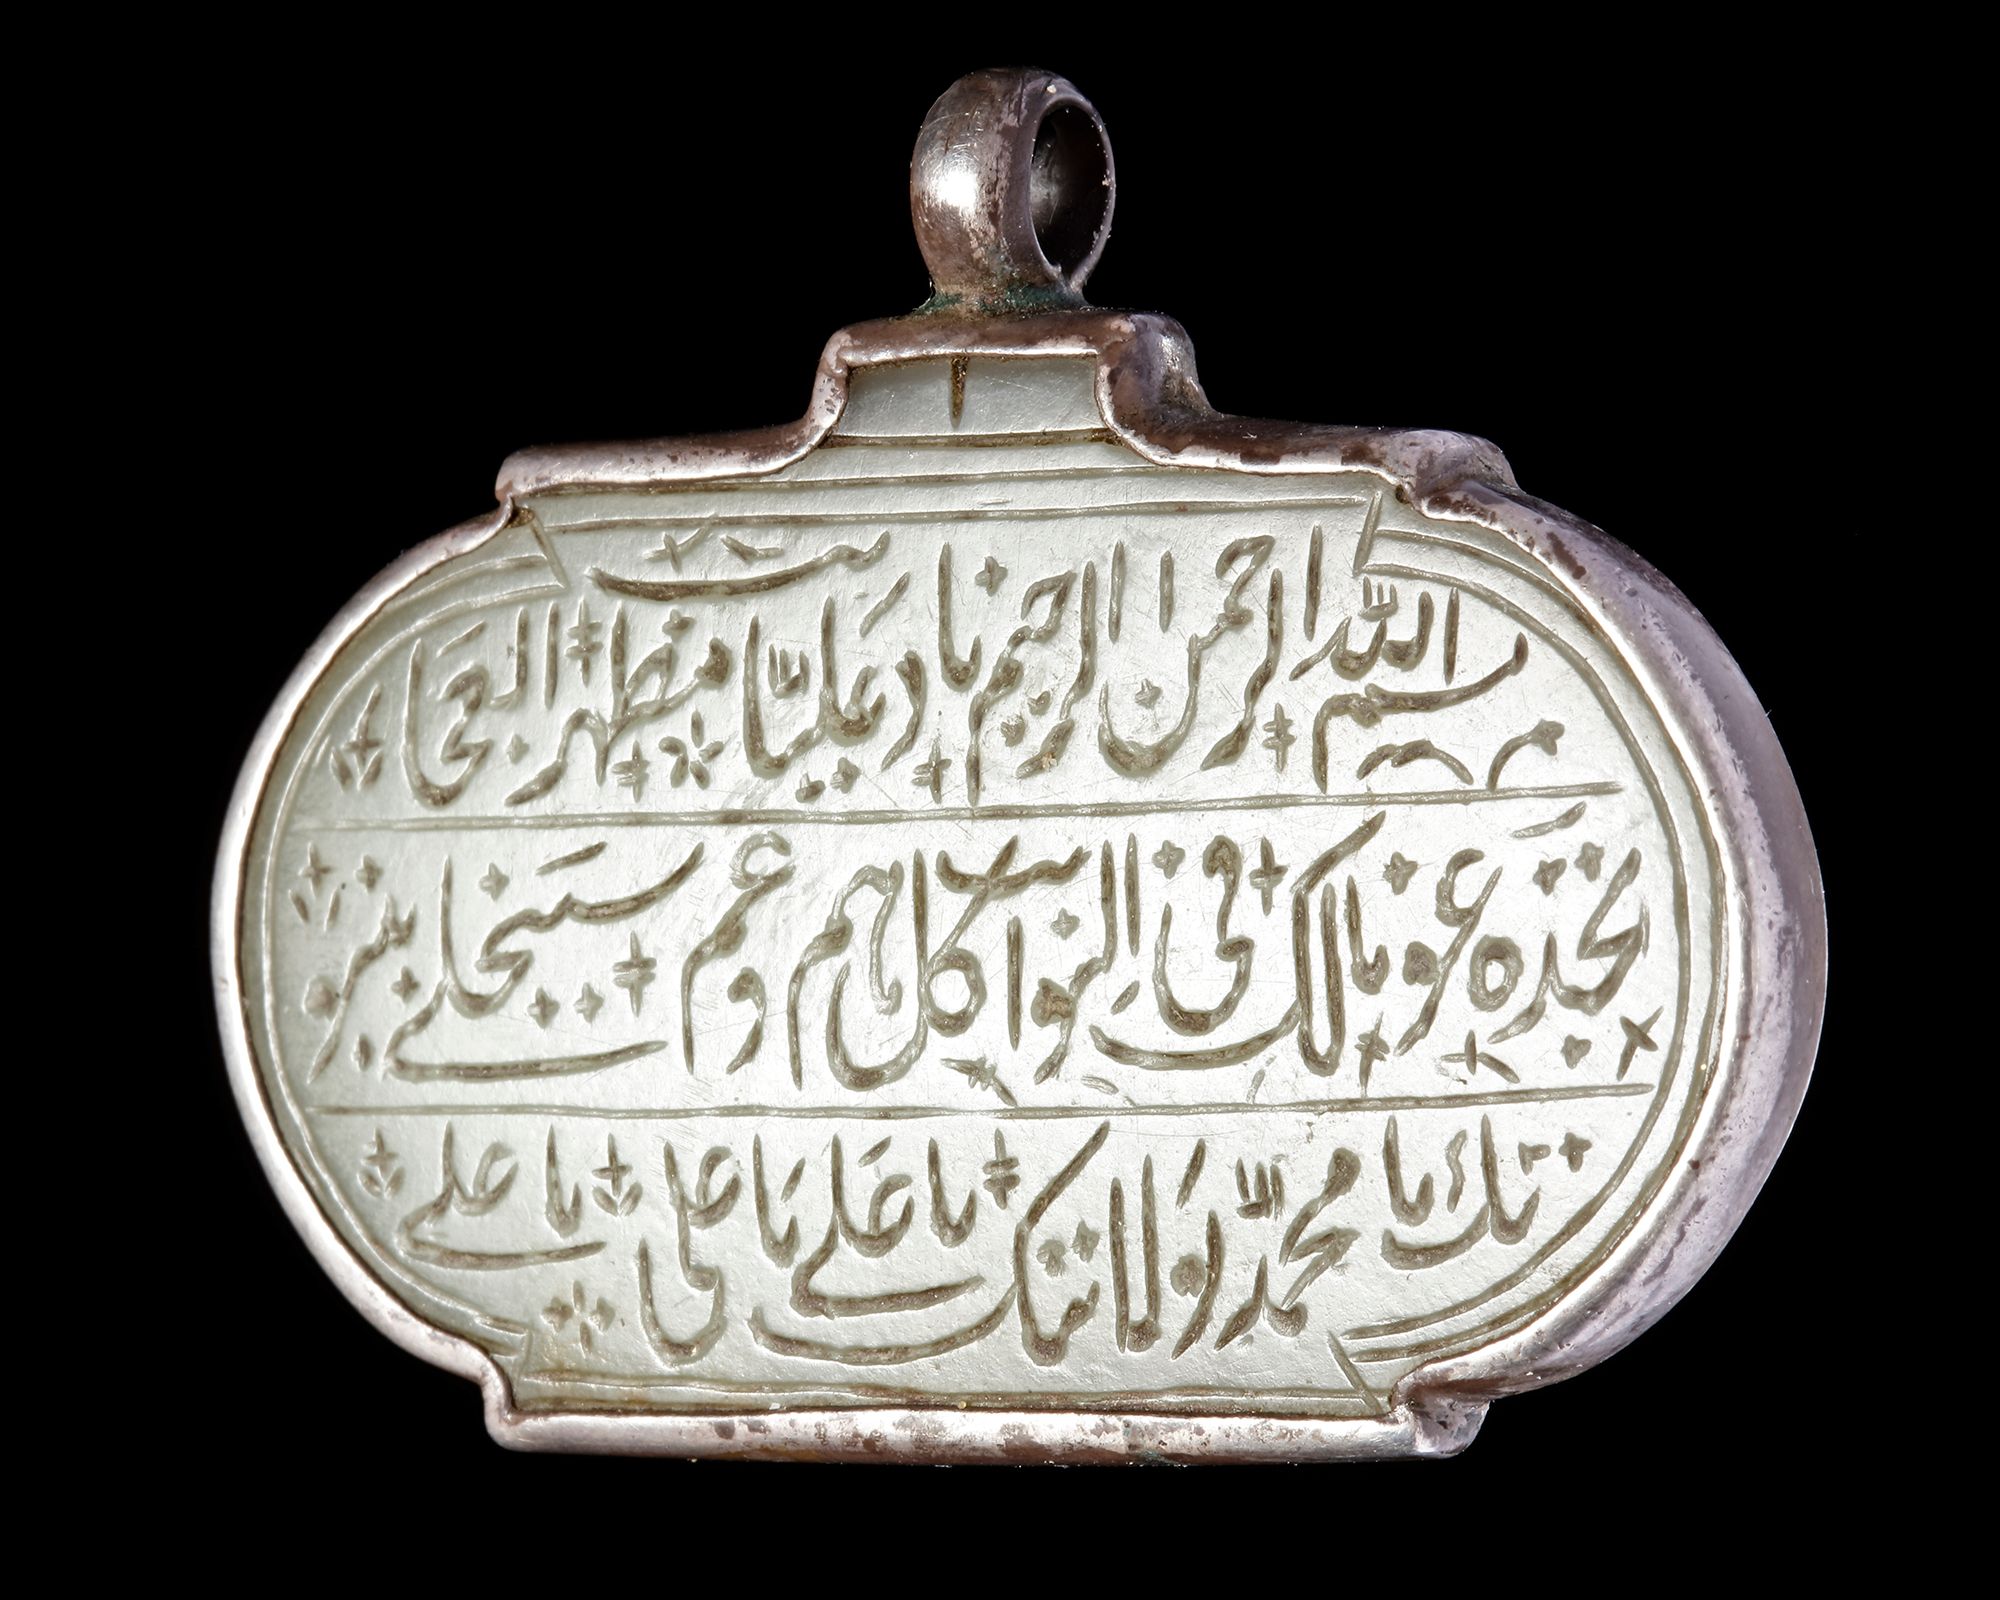 بسم الله الرحمن الرحيم ناد عليّا مظهر العجايب
تجده عونا لك في النوايب كل هم وغم سينجلي بنبو
تك يا محمّد بولايتك يا علي يا علي يا علي